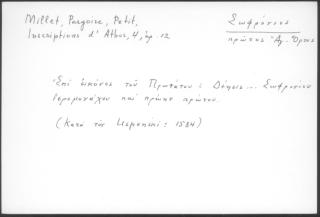 Millet, Pargoire, Petit,
Inscriptions d'Athos, 4, ἀρ. 12
Σωφρόνιος
πρῶτος Ἁγ. Ὄρους
Ἐπὶ εἰκόνος τοῦ Πρωτάτου: Δέησις ... Σωφρονίου
ἱερομονάχου καὶ πρώην πρώτου.
(Κατὰ τὸν Uspenski: 1534)